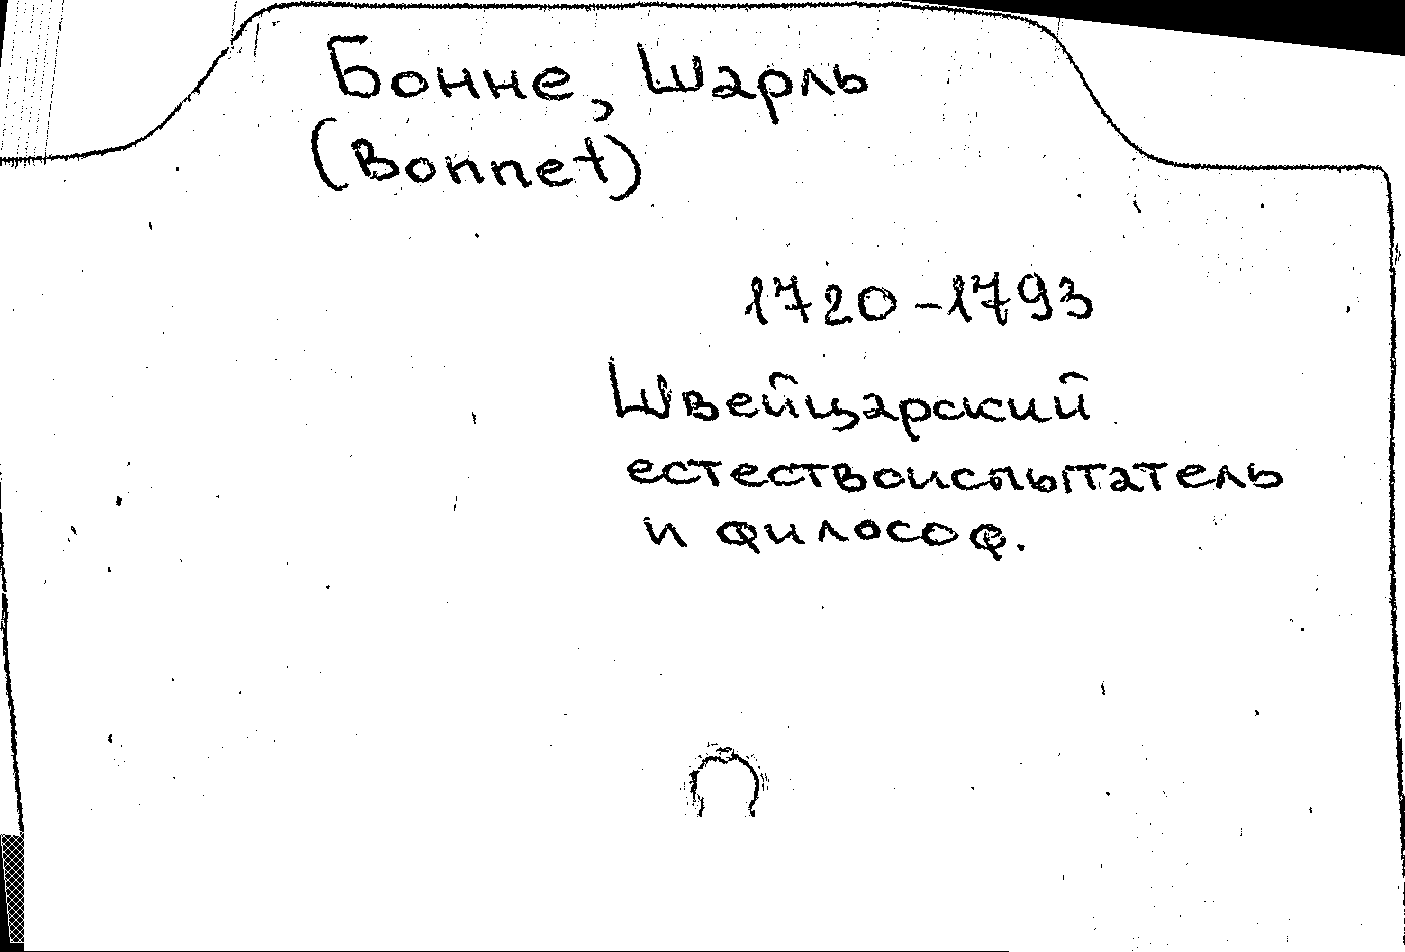 Бонне, Шарль
(Bonnet)
1720-1793
Швейцарский
естествоиспытатель
и философ.